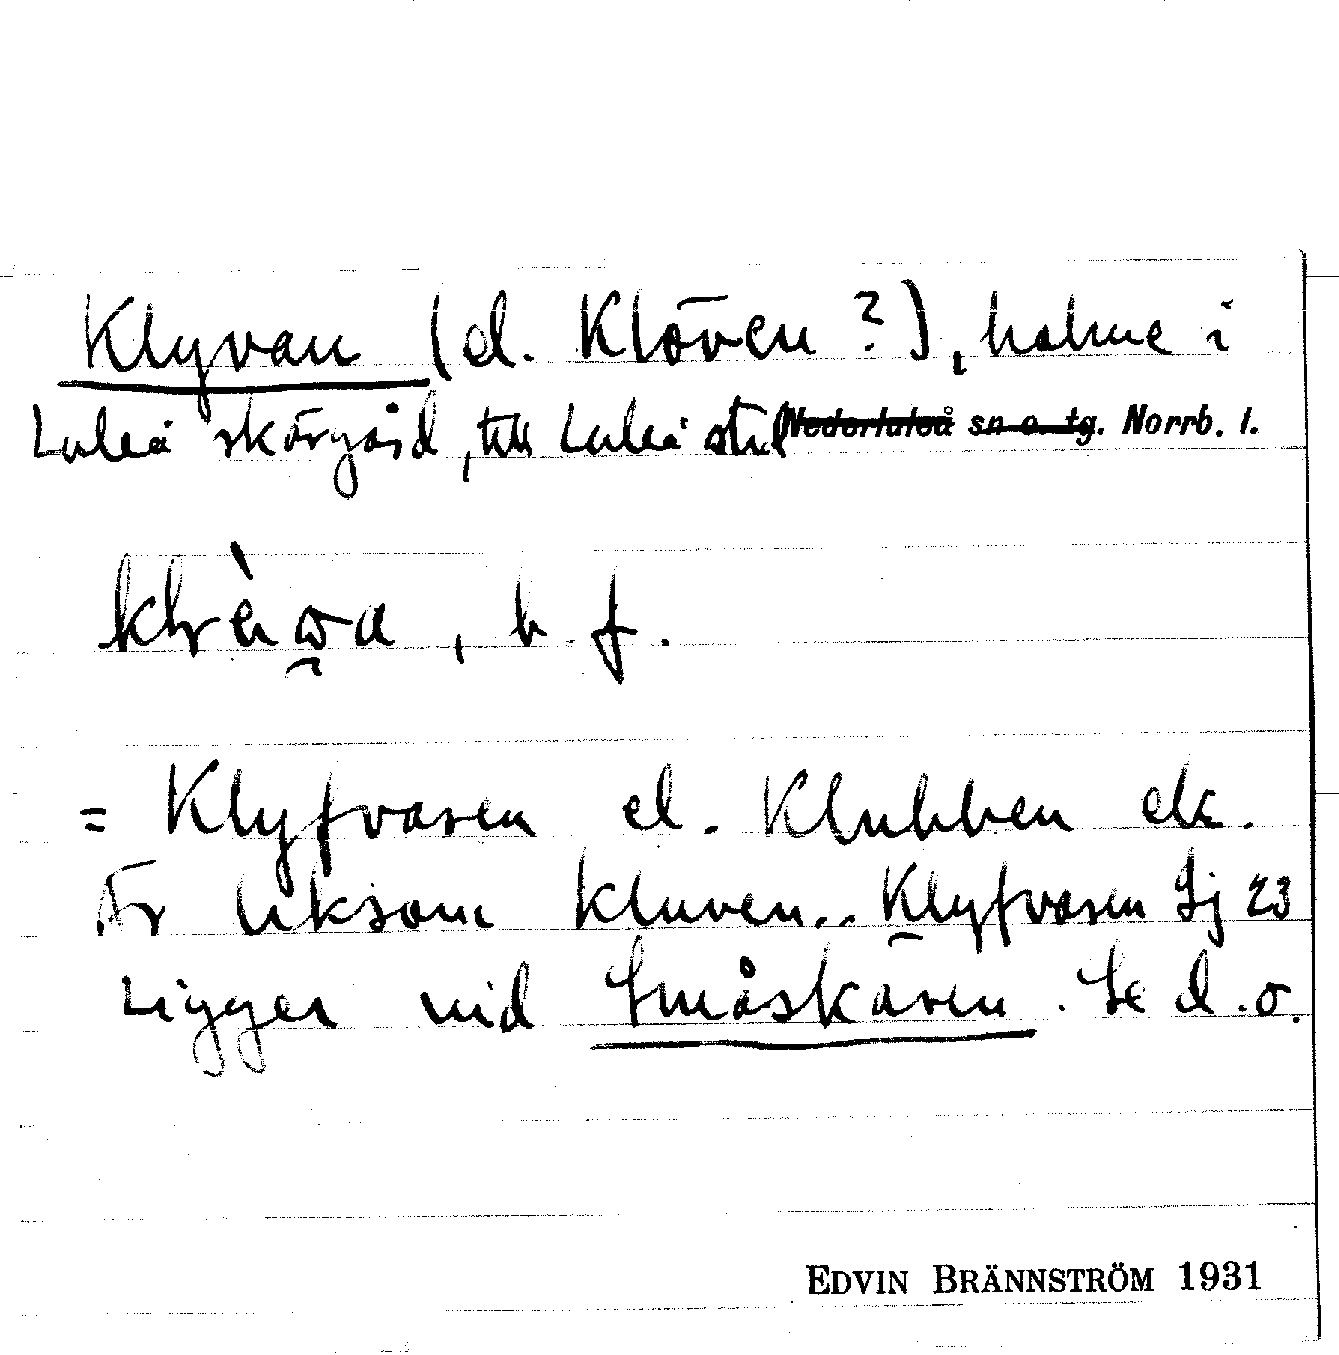 Klyvan (el. Klöven ?), holme i
Luleå skärgård, till Luleå std Nederluleå sn o. tg. Norrb. l.
, b. f.
= Klyfvaren el. Klubben ek.
Är liksom kluven.. Klyfvaren Sj 23
Ligger vid Småskären. Se d. o.
EDVIN BRÄNNSTRÖM 1931